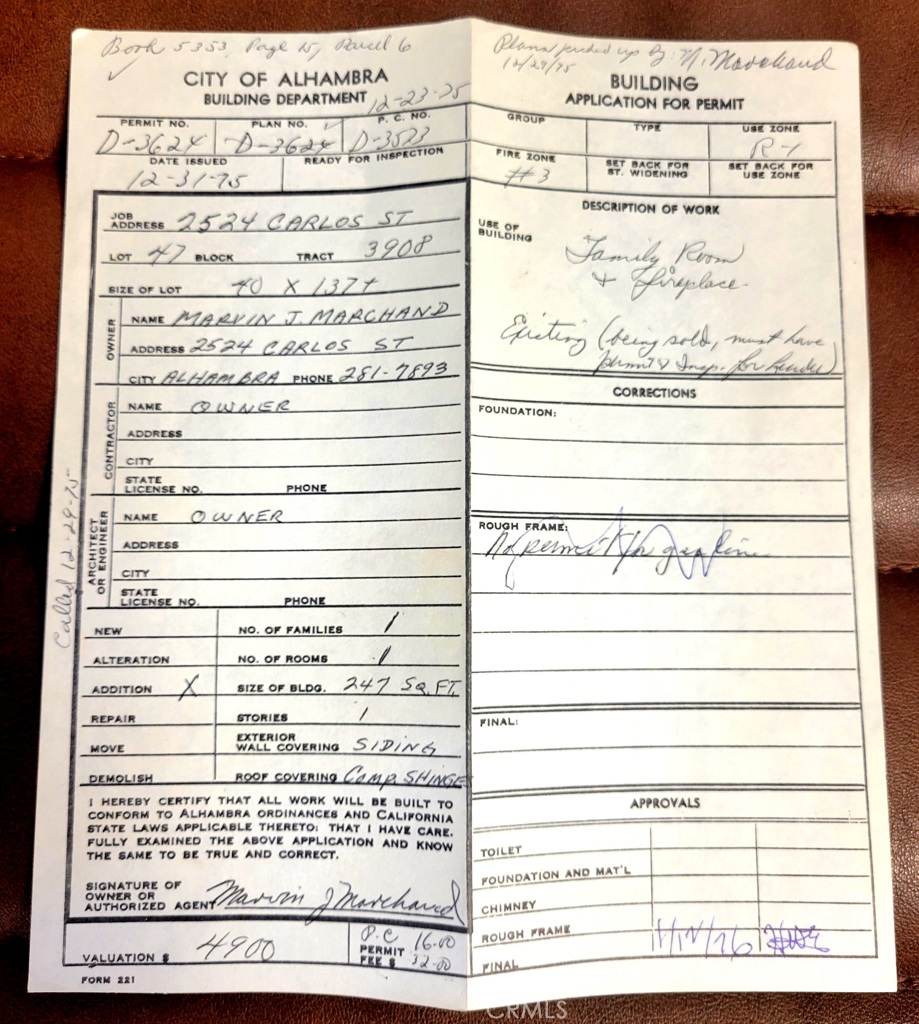 Book 5353, Page 15, Parcel 6
✓
CITY OF ALHAMBRA
BUILDING DEPARTMENT 12-23-75
PERMIT NO. PLAN NO. P. C. NO.
D-3624 D-3624 D-3523
DATE ISSUED READY FOR INSPECTION
12-31-75
JOB
ADDRESS 2524 CARLOS ST
LOT 47 BLOCK TRACT 3908
SIZE OF LOT 40 X 137+
OWNER
NAME MARVIN J. MARCHAND
ADDRESS 2524 CARLOS ST
CITY ALHAMBRA PHONE 281-7893
CONTRACTOR
NAME OWNER
ADDRESS
CITY
STATE
LICENSE NO. PHONE
ARCHITECT
OR ENGINEER
NAME OWNER
ADDRESS
CITY
STATE
LICENSE NO. PHONE
Called 12-29-75
NEW NO. OF FAMILIES 1
ALTERATION NO. OF ROOMS 1
ADDITION X SIZE OF BLDG. 247 SQ. FT.
REPAIR STORIES 1
MOVE EXTERIOR WALL COVERING SIDING
DEMOLISH ROOF COVERING COMP. SHINGE
I HEREBY CERTIFY THAT ALL WORK WILL BE BUILT TO
CONFORM TO ALHAMBRA ORDINANCES AND CALIFORNIA
STATE LAWS APPLICABLE THERETO: THAT I HAVE CARE.
FULLY EXAMINED THE ABOVE APPLICATION AND KNOW
THE SAME TO BE TRUE AND CORRECT.
SIGNATURE OF
OWNER OR
AUTHORIZED AGENT Marvin J Marchand
VALUATION $ 4900
P.C 16.00
PERMIT
FEE $ 32.00
FORM 221
Plans picked up by: M. Marchand
12/29/75
BUILDING
APPLICATION FOR PERMIT
GROUP TYPE USE ZONE
R-1
FIRE ZONE SET BACK FOR ST. WIDENING SET BACK FOR USE ZONE
#3
DESCRIPTION OF WORK
USE OF
BUILDING
Family Room
+ Fireplace
Existing (being sold, must have
permit & Insp. for lender)
CORRECTIONS
FOUNDATION:
ROUGH FRAME:
No permit for gas line
FINAL:
APPROVALS
TOILET
FOUNDATION AND MAT'L
CHIMNEY
ROUGH FRAME 1/12/76
FINAL
CRMLS